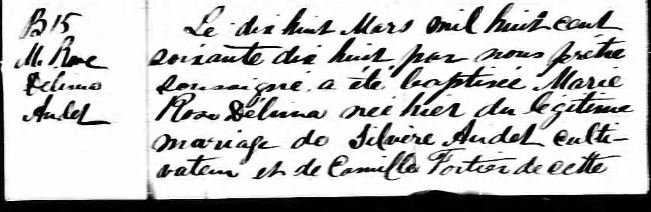 B15
M. Rose
Délima
Audet
Le dix huit Mars mil huit cent
soixante dix huit par nous prêtre
soussigné a été baptisée Marie
Rose Délima née hier du légitime
mariage de Silvère Audet culti-
vateur et de Camille Fortier de cette